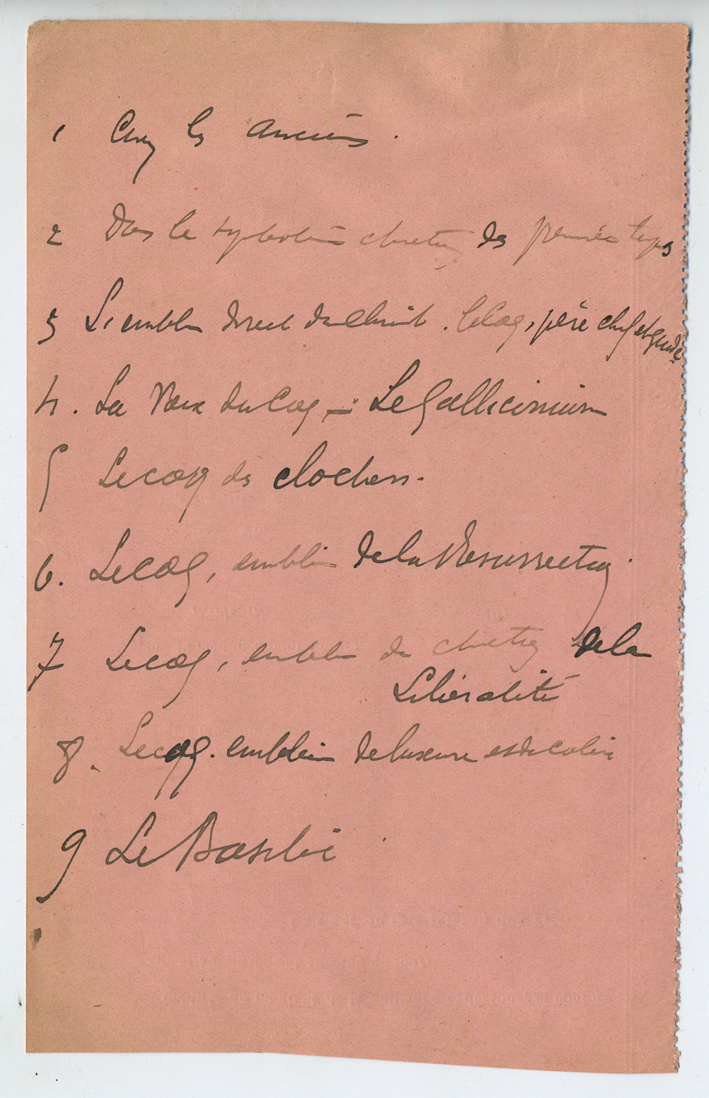 1 Chez les Anciens.
2 Dans le symbolisme chrétien des premiers temps
3 L'emblème direct du Christ. Le Coq, père chef et guide
4. La Voix du Coq – Le Gallicinium
5 Le coq des clochers.
6. Le coq, emblème de la Résurrection.
7 Le coq, emblème du chrétien de la
Libéralité
8. Le coq. emblème de luxure et de colère
9 Le Basilic